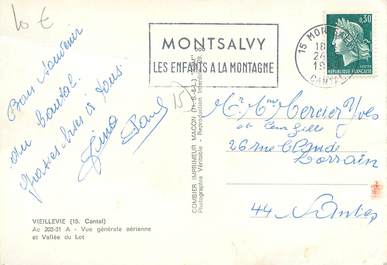 10 €
MONTSALVY
LES ENFANTS A LA MONTAGNE
15 MONT
18
CANTAL
0,30
REPUBLIQUE FRANÇAISE
POSTES
Bon Souvenir
du Cantal.
Grosses bises à tous.
Paul
Mr Mme Mercier Yves
et Leur fille
26 rue Claude
Lorrain
44 Nantes
COMBIER IMPRIMEUR MACON
Photographie Véritable - Reproduction Interdite
VIEILLEVIE (15. Cantal)
Ac 202-31 A - Vue générale aérienne
et Vallée du Lot